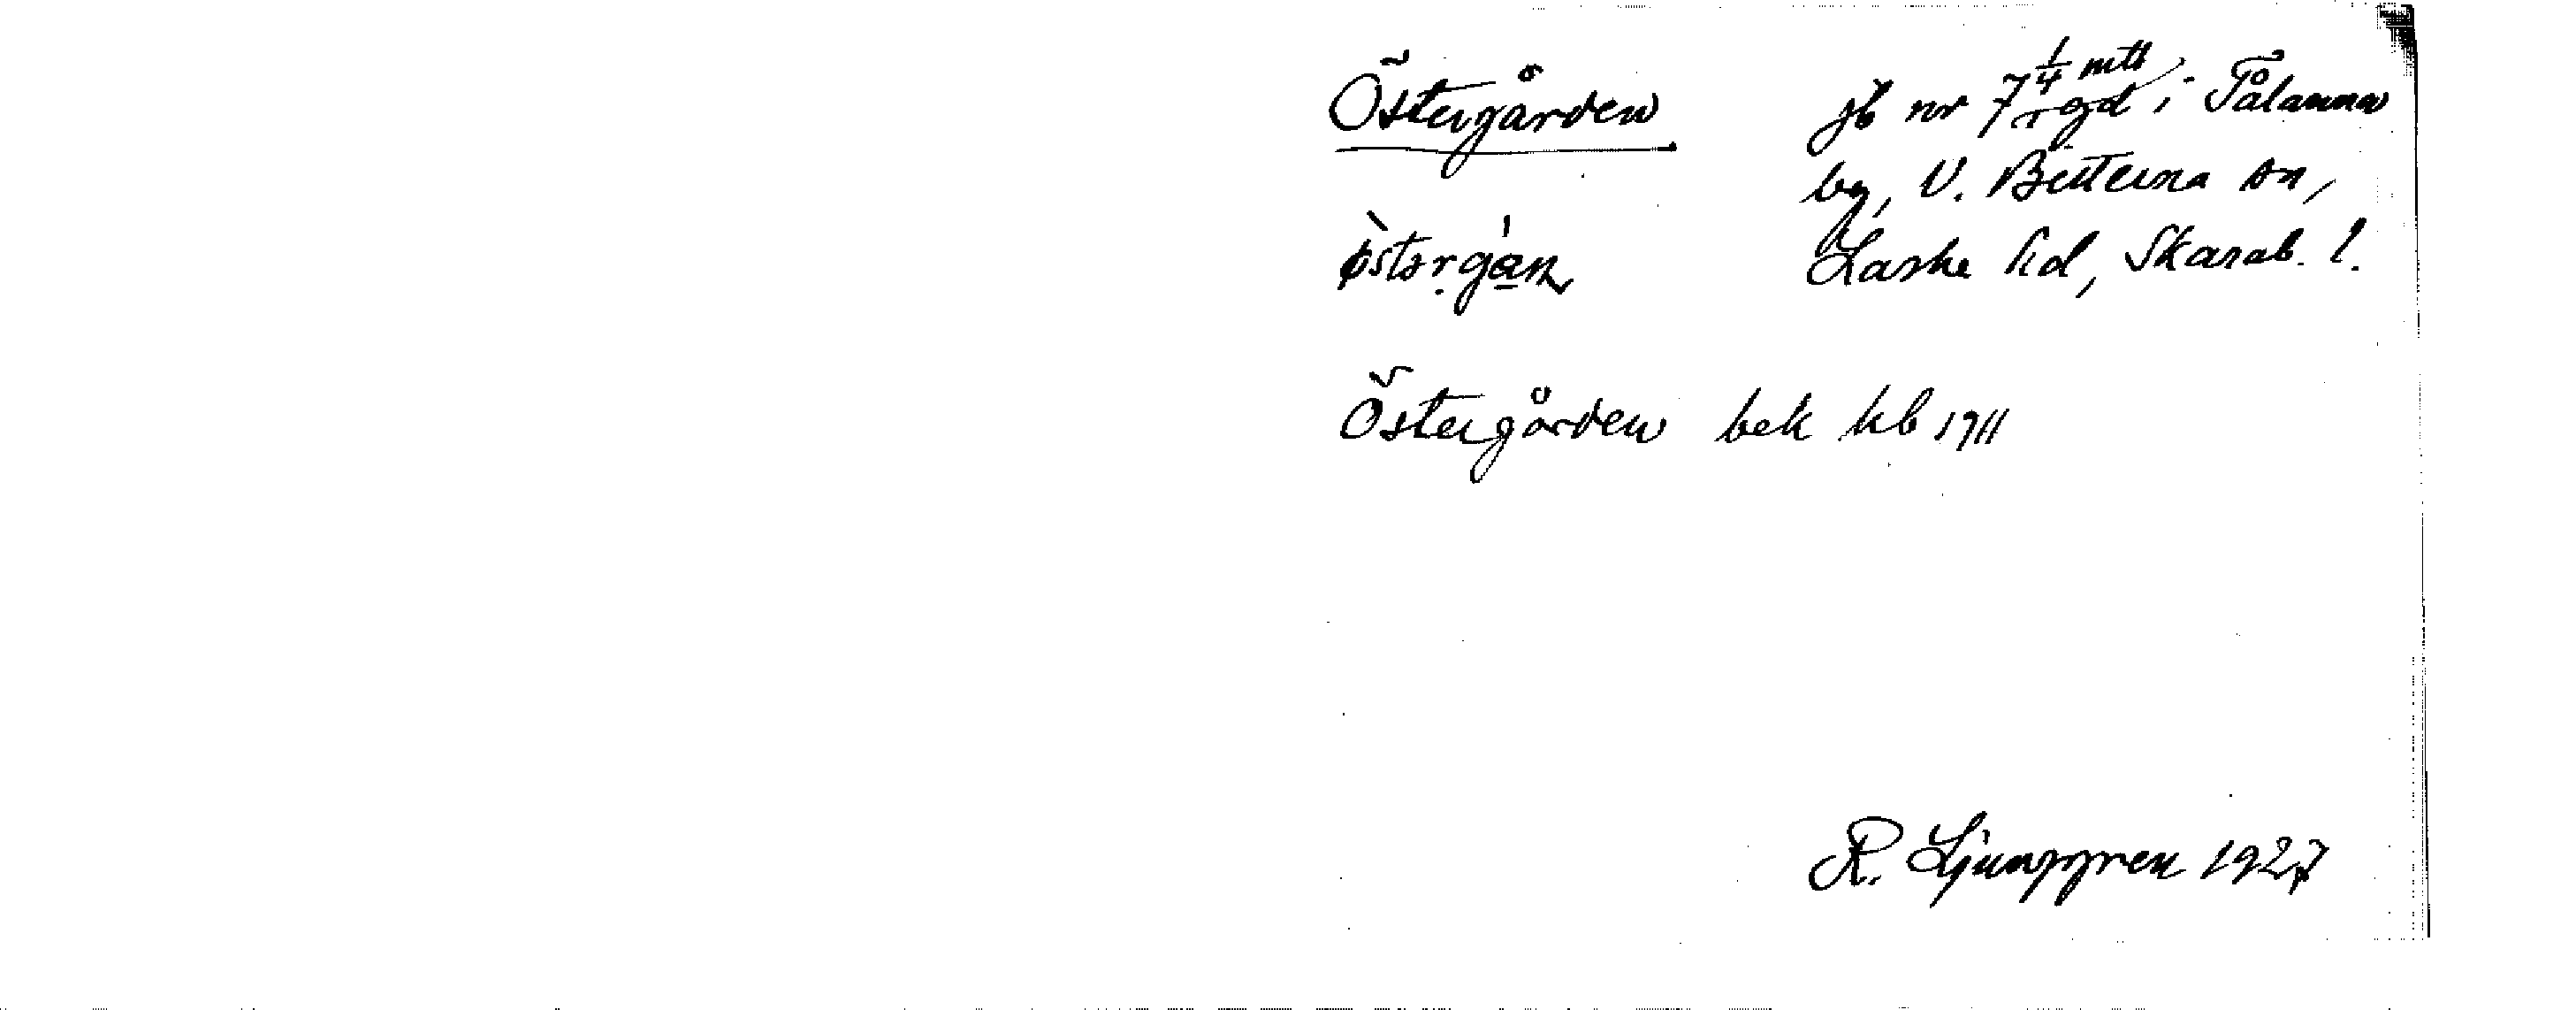 Östergården jb nr 7 1/4 mtl gd i Tålanna
by, V. Bitterna sn,
Laske hd, Skarab. l.
Östergården bek kb 1911
R. Ljunggren 1927